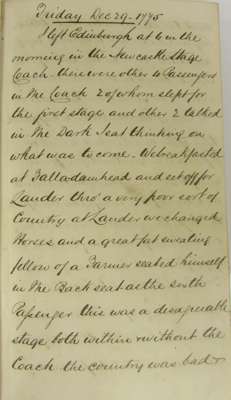 Friday Dec 29 - 1775
I left Edinburgh at 6 in the
morning in the Newcastle Stage
Coach. there were other 5 Passengers
in the Coach 2 of whom slept for
the first stage and other 2 talked
in the Dark I sat thinking on
what was to come. We breakfasted
at Falladamhead and set off for
Lauder thro' a very poor sort of
Country at Lauder we changed
Horses and a great fat sweating
fellow of a Farmer seated himself
in the Back seat as the sixth
Passenger this was a disagreeable
stage both within & without the
Coach the country was bad &